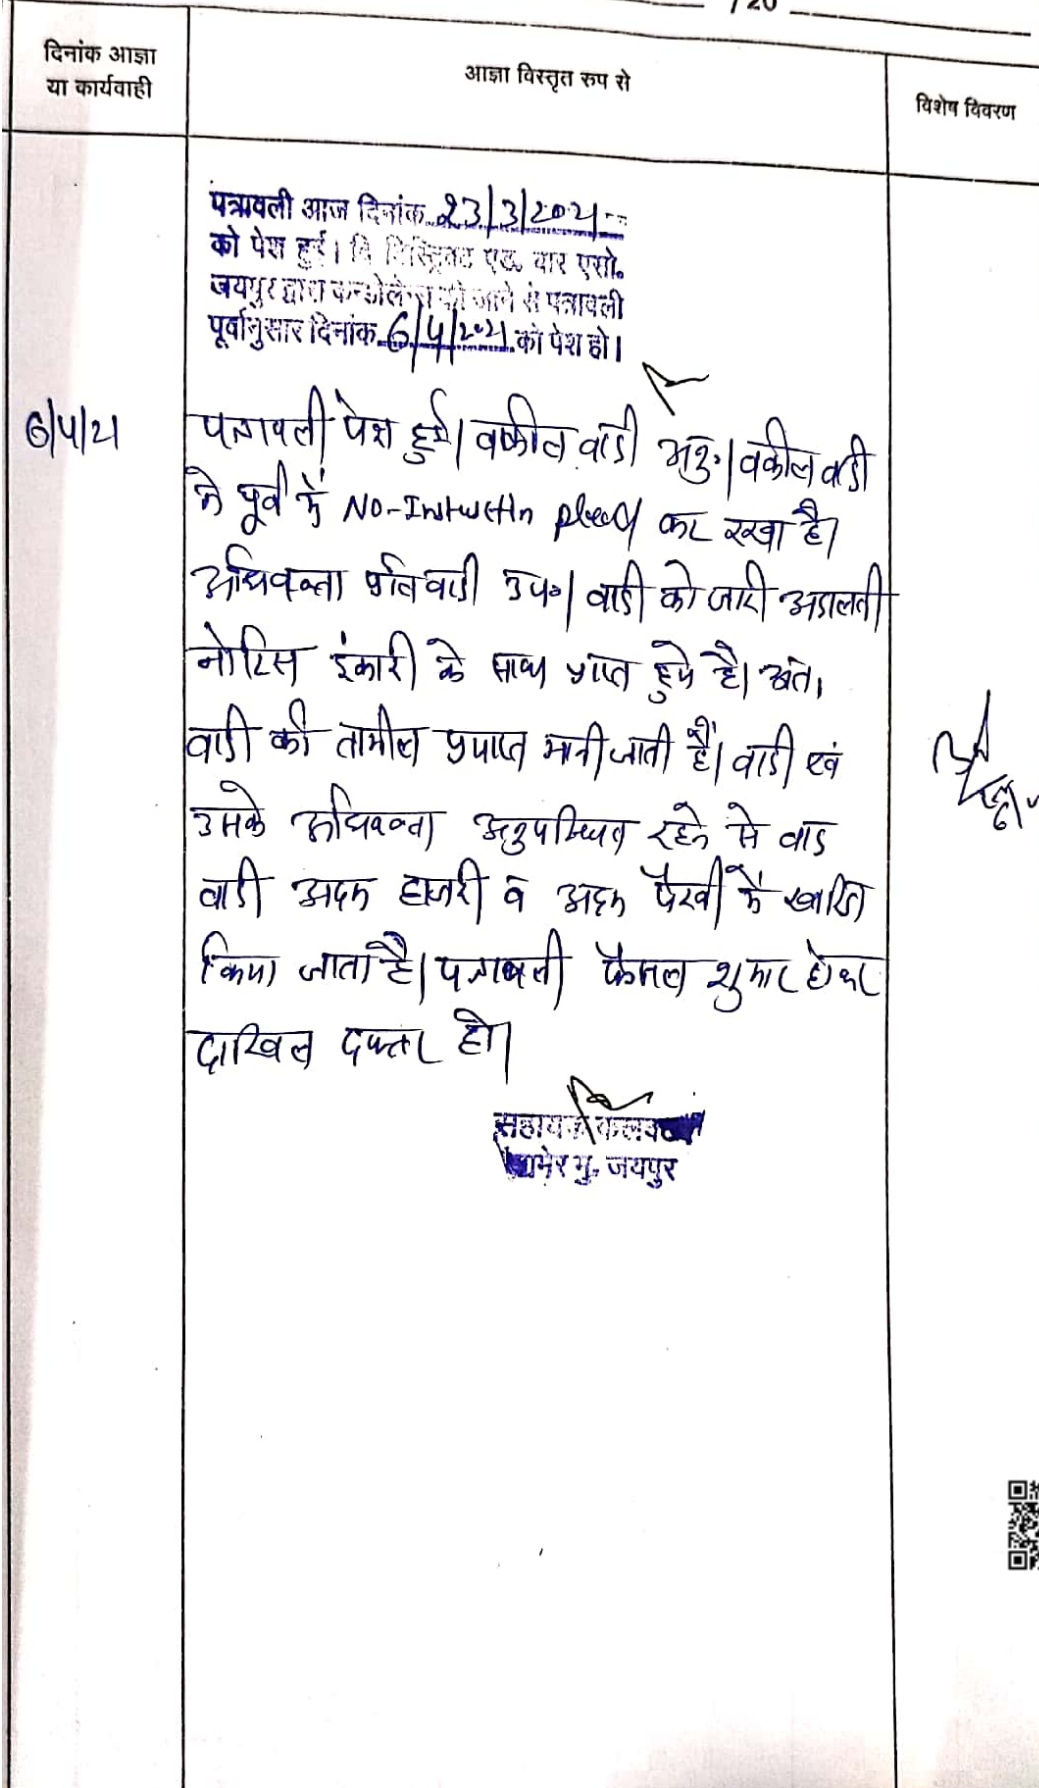 /20
दिनांक आज्ञा
या कार्यवाही
आज्ञा विस्तृत रुप से
विशेष विवरण
पत्रावली आज दिनांक 23/3/2021
को पेश हुई। दि डिस्ट्रिक्ट एड. बार एसो.
जयपुर द्वारा कन्डोलेन्स की जाने से पत्रावली
पूर्वानुसार दिनांक 6/4/2021 को पेश हो।
6/4/21
पत्रावली पेश हुई। वकील वादी अनु.। वकील वादी
ने पूर्व में No-Instruction plead कर रखा है।
अधिवक्ता प्रतिवादी उप.। वादी को जारी अदालती
नोटिस इंकारी के साथ प्राप्त हुये है। अतः
वादी की तामील पर्याप्त मानी जाती हैं। वादी एवं
उसके अधिवक्ता अनुपस्थित रहने से वाद
वादी अदम हाजरी व अदम पैरवी में खारिज
किया जाता है। पत्रावली फैसल शुमार होकर
दाखिल दफ्तर हो।
सहायक कलक्टर
आमेर मु. जयपुर